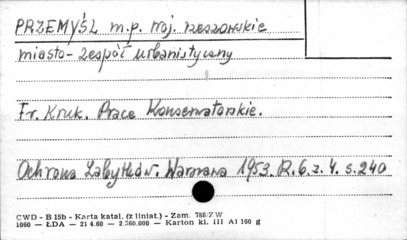 PRZEMYŚL m.p. woj. rzeszowskie
miasto - zespół urbanistyczny
Fr. Kruk. Prace Konserwatorskie.
Ochrona Zabytków. Warszawa 1953. R. 6. z. 4. s. 240
CWD - B 15b - Karta katal. (z liniat.) - Zam. 788/ZW
1060 — ŁDA — 21 4.60 — 2.360.000 — Karton kl. III A1 160 g